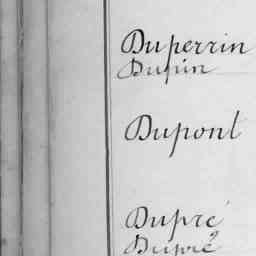 Duperrin
Dupin
Dupont
Dupré
Dupré